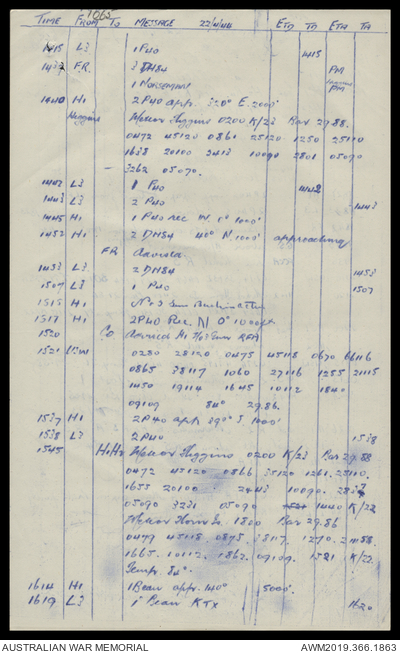 1065
TIME FROM TO MESSAGE 22/4/44 ETD TD ETA TA
1415 L3 1 P40 1415
1437 FR. 3 DH84 PM
1 Norseman PM
1440 H1 2 P40 app. 320° E. 2000'
Higgins Meteor Higgins 0200 K/23 Bar 29.88.
0472 45120 0861 25120 1250 25110
1638 20100 2413 10090 2801 05090
3262 05070.
1442 L3 1 P40 1442
1443 L3 2 P40 1443
1445 H1 1 P40 rec N 0° 1000'
1452 H1 2 DH84 40° N 1000' approaching
FR Advised
1453 L3 2 DH84 1453
1507 L3 1 P40 1507
1515 H1 No 3 Gun
1517 H1 2P40 Rec. N 0° 1000ft
1520 Co Advised
1521 0280 28120 0475 45118 0670 66116
0865 38117 1060 27116 1255 21115
1450 19114 1645 10112 1840
09109 84° 29.86.
1537 H1 2 P40 app 290° E 1000'
1538 L3 2P40 1538
1545 H1H2 Meteor Higgins 0200 K/23 Bar 29.88
0472 45120 0866 35120 1261 25110.
1655 20100 2443 10090. 2837
05090 3231 05090 1440 K/22
Meteor Horn Is. 1500 Bar 29.86
0479 45118 0875 38117. 1270. 21115.
1665. 10112. 1862. 09109. 1521 K/22.
Temp. 84°.
1614 H1 1 Beau appr. 140° 5000'.
1619 L3 1 Beau KTX 1620
AUSTRALIAN WAR MEMORIAL AWM2019.366.1863